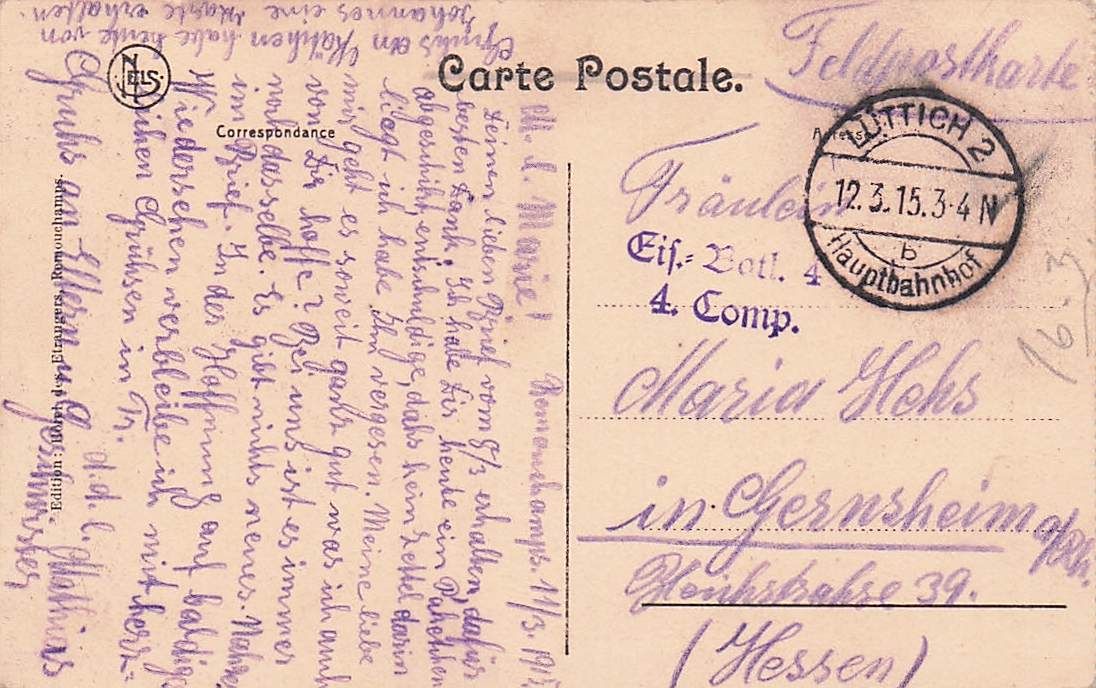 Carte Postale.
NELS
Correspondance
Adresse
Feldpostkarte
LÜTTICH 2
12.3.15.3-4 N
b
Hauptbahnhof
Fräulein
Eis.-Batl. 4
4. Comp.
Maria Heks
in Gernsheim a/Rh.
39.
(Hessen)
16.3
Remouchamps. 11/3. 1915
M. l. Marie!
Deinen lieben Brief vom 8/3 erhalten dafür
besten Dank. Ich habe Dir heute ein Paketchen
abgeschikt, entschuldige, dahs kein Zettel darin
liegt ich habe Ihn vergesen. Meine liebe
mir geht es soweit ganz gut was ich auch
von Dir hoffe? Bei uns ist es immer
noch dasselbe. Es gibt nichts neues. Näheres
im Brief. In der Hoffnung auf baldiges
Wiedersehen verbleibe ich mit herz-
lichen Grühsen in Tr.
d. d. l. Mathias
Gruhs an Eltern u. Geschwister
Gruhs an Käthchen habe heute von
Johannes eine Karte erhalten.
Edition: Hôtel des Etrangers, Remouchamps.